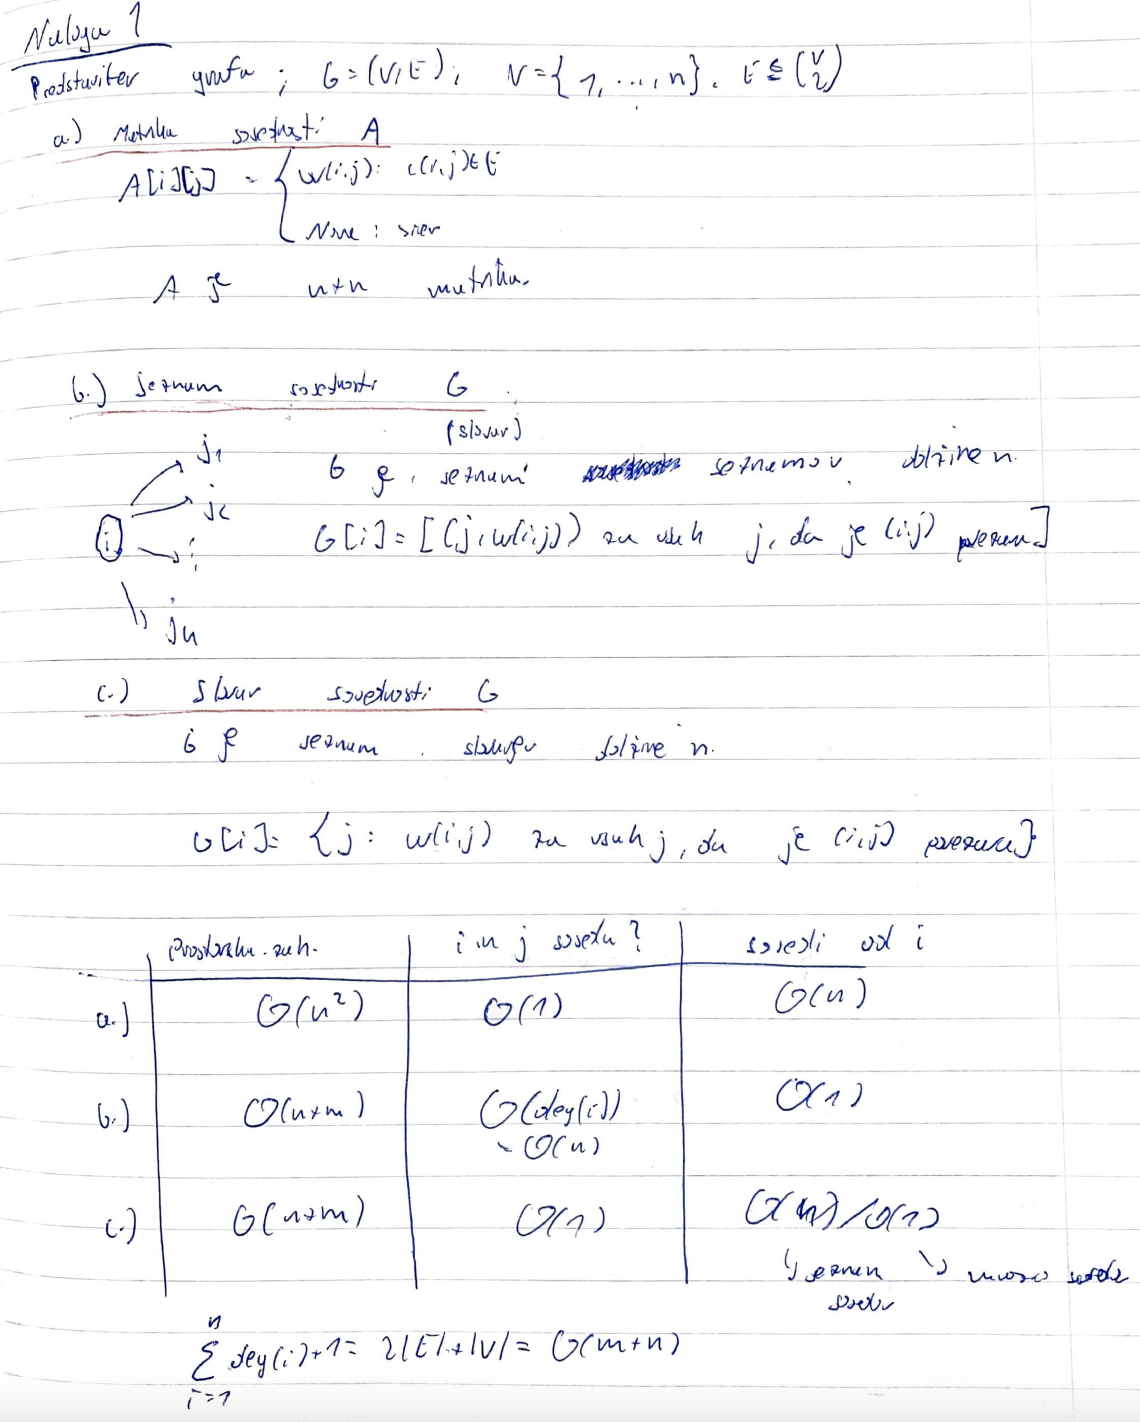 Naloga 1
Predstavitev grafa ; G=(V,E); V={1,...,n}. E ⊆ (V 2)
a.) Matrika sosednosti A
A[i][j] = { w(i,j): (i,j)∈E
None : sicer
A je n×n matrika.
b.) Seznam sosednosti G
(slovar)
G je seznam seznamov dolžine n.
i j₁ j₂ ⋮ jₙ
G[i] = [(j, w(i,j)) za vseh j, da je (i,j) povezava]
c.) Slovar sosednosti G
G je seznam slovarjev dolžine n.
G[i]= {j : w(i,j) za vseh j, da je (i,j) povezava}
Prostorska zah. i in j soseda? sosedi od i
a.) O(n²) O(1) O(n)
b.) O(n+m) O(deg(i)) O(1)
~ O(n)
c.) O(n+m) O(1) O(n)/O(1)
↳ seznam ↳ množica sosedov
sosedov
n
Σ deg(i)+1 = 2|E|+|V| = O(m+n)
i=1